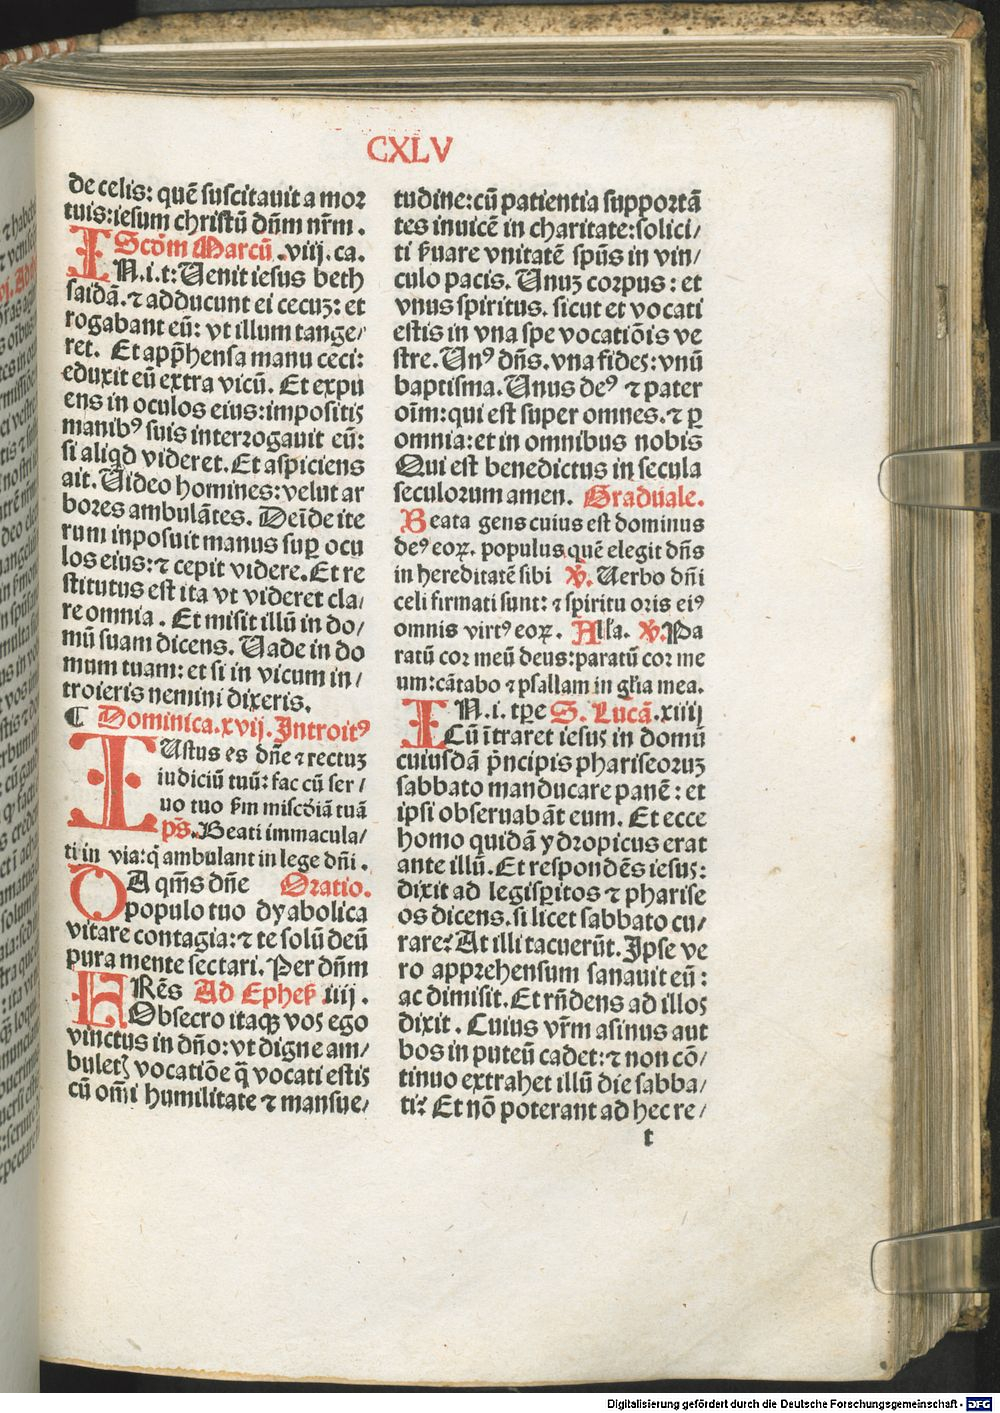 CXLV
de celis: quē suscitauit a mor
tuis: iesum christū dn̄m nr̄m.
Scd̄m Marcū .viij. ca.
IN.i.t: Uenit iesus beth
saidā. ⁊ adducunt ei cecuꝫ: et
rogabant eū: vt illum tange/
ret. Et app̄hensa manu ceci:
eduxit eū extra vicū. Et expu
ens in oculos eius: impositis
manibꝰ suis interrogauit eū:
si aliqd videret. Et aspiciens
ait. Uideo homines: velut ar
bores ambulātes. Deīde ite
rum imposuit manus suꝑ ocu
los eius: ⁊ cepit videre. Et re
stitutus est ita vt videret cla/
re omnia. Et misit illū in do/
mū suam dicens. Uade in do
mum tuam: et si in vicum in/
troieris nemini dixeris.
¶ Dominica.xvij. Introitꝰ
IUstus es dn̄e ⁊ rectuꝫ
iudiciū tuū: fac cū ser/
uo tuo ẜm miscd̄iā tuā
ps̄. Beati immacula/
ti in via: q̄ ambulant in lege dn̄i.
DA qm̄s dn̄e Oratio.
populo tuo dyabolica
vitare contagia: ⁊ te solū deū
pura mente sectari. Per dn̄m
FRēs Ad Epheẜ .iiij.
Obsecro itaqꝫ vos ego
vinctus in dn̄o: vt digne am/
buletꝭ vocatiōe q̄ vocati estis
cū om̄i humilitate ⁊ mansue/
tudine: cū patientia supportā
tes inuicē in charitate: solici/
ti ẜuare vnitatē spūs in vin/
culo pacis. Unuꝫ corpus: et
vnus spiritus. sicut et vocati
estis in vna spe vocatiōis ve
stre. Unꝰ dn̄s. vna fides: vnū
baptisma. Unus deꝰ ⁊ pater
oīm: qui est super omnes. ⁊ ꝑ
omnia: et in omnibus nobis
Qui est benedictus in secula
seculorum amen. Graduale.
Beata gens cuius est dominus
deꝰ eoꝝ. populus quē elegit dn̄s
in hereditatē sibi ℣. Uerbo dn̄i
celi firmati sunt: ⁊ spiritu oris eiꝰ
omnis virtꝰ eoꝝ. All̄a. ℣. Pa
ratū cor meū deus: paratū cor me
um: cātabo ⁊ psallam in gl̄ia mea.
IN.i.tp̄e S. Lucā.xiiij
Cū ītraret iesus in domū
cuiusdā p̄ncipis phariseoruꝫ
sabbato manducare panē: et
ipsi obseruabāt eum. Et ecce
homo quidā ydropicus erat
ante illū. Et respondēs iesus:
dixit ad legisꝑitos ⁊ pharise
os dicens. si licet sabbato cu/
rare? At illi tacuerūt. Ipse ve
ro apprehensum sanauit eū:
ac dimisit. Et rn̄dens ad illos
dixit. Cuius vr̄m asinus aut
bos in puteū cadet: ⁊ non cō/
tinuo extrahet illū die sabba/
ti? Et nō poterant ad hec re/
t
Digitalisierung gefördert durch die Deutsche Forschungsgemeinschaft - DFG